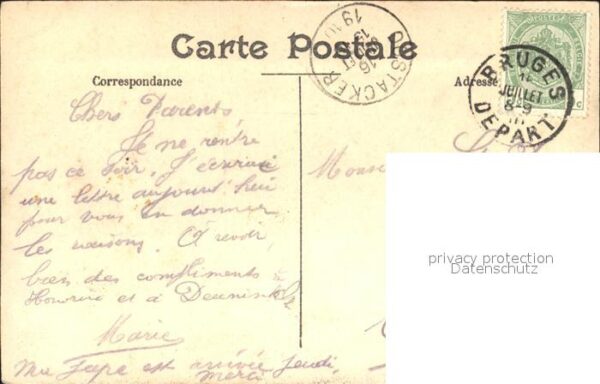 Carte Postale
Correspondance
Adresse
OOSTACKER
16
1910
BRUGES
JUILLET
8-9
DEPART
Chers Parents
Je ne rentre
pas ce soir, J'écrirai
une lettre aujourd'hui
pour vous en donner
les raisons. A revoir,
bien des compliments à
Honorine et à
Marie
Ma Jupe est arrivée jeudi,
merci
Mons
privacy protection
Datenschutz